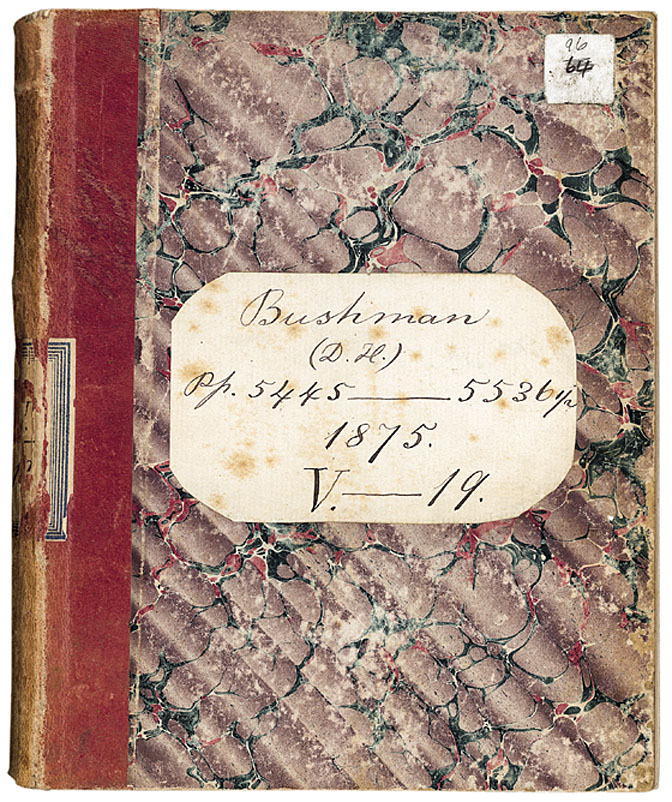 96
64
Bushman
(D. H.)
Pp. 5445 — 5536 1/2
1875.
V. — 19.